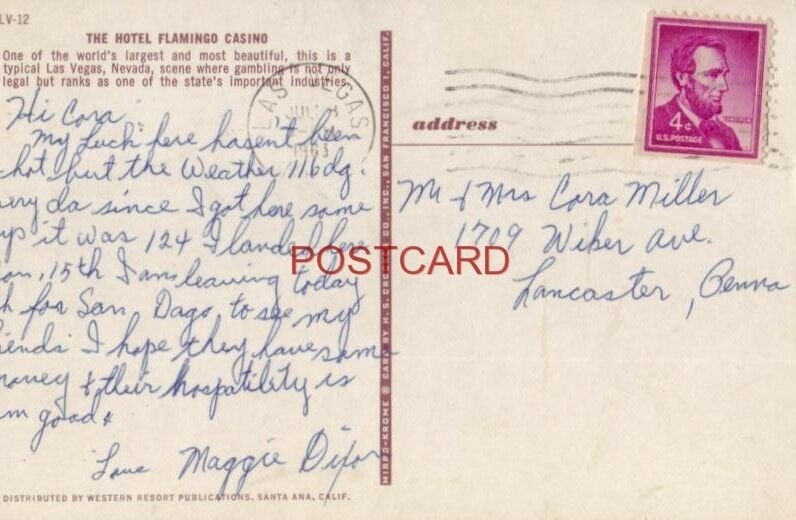 LV-12
THE HOTEL FLAMINGO CASINO
One of the world's largest and most beautiful, this is a
typical Las Vegas, Nevada, scene where gambling is not only
legal but ranks as one of the state's important industries.
Hi Cora
My luck here hasent been
hot but the Weather 116 dg.
ery da since I got here some
it was 124 I landed here
on, 15th I am leaving today
for San Dago, to see my
iends I hope they have some
money & their hospatility is
good
Love Maggie Dixon
DISTRIBUTED BY WESTERN RESORT PUBLICATIONS, SANTA ANA, CALIF.
MIRRO-KROME ® CARD BY H. S. CROCKER CO., INC., SAN FRANCISCO 1, CALIF.
LAS VEGAS
1963
address
4¢
U.S. POSTAGE
Mr & Mrs Cora Miller
1709 Wiker Ave.
Lancaster, Penna
POSTCARD